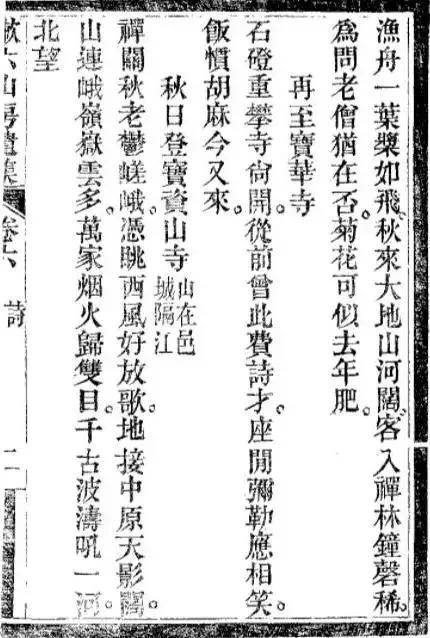 漁舟一葉槳如飛。秋來大地山河闊。客入禪林鐘磬稀。
爲問老僧猶在否。菊花可似去年肥。
再至寶華寺
石磴重攀寺尙開。從前曾此費詩才。座閒彌勒應相笑。
飯慣胡麻今又來。
秋日登寶資山寺 山在邑
城隔江
禪關秋老鬱嵯峨。憑眺西風好放歌。地接中原天影闊。
山連峨嶺嶽雲多。萬家烟火歸雙目。千古波濤吼一河。
北望
六山房遺集 卷六 詩